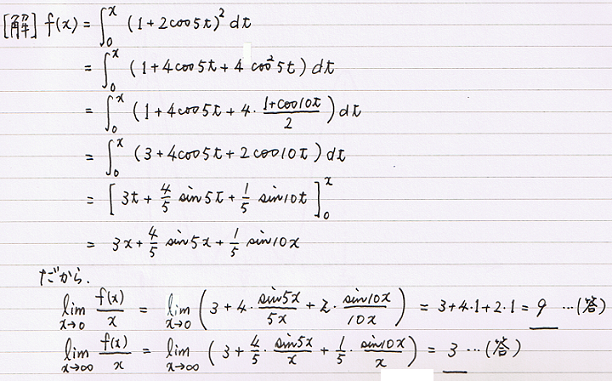 [解] f(x) = ∫₀ˣ (1+2cos5t)² dt
= ∫₀ˣ (1+4cos5t+4 cos²5t) dt
= ∫₀ˣ (1+4cos5t+4・(1+cos10t)/2) dt
= ∫₀ˣ (3+4cos5t+2cos10t) dt
= [3t+4/5 sin5t+1/5 sin10t]₀ˣ
= 3x+4/5 sin5x+1/5 sin10x
だから.
lim x→0 f(x)/x = lim x→0 (3+4・sin5x/5x+2・sin10x/10x) = 3+4・1+2・1 = 9 …(答)
lim x→∞ f(x)/x = lim x→∞ (3+4/5・sin5x/x+1/5・sin10x/x) = 3 …(答)